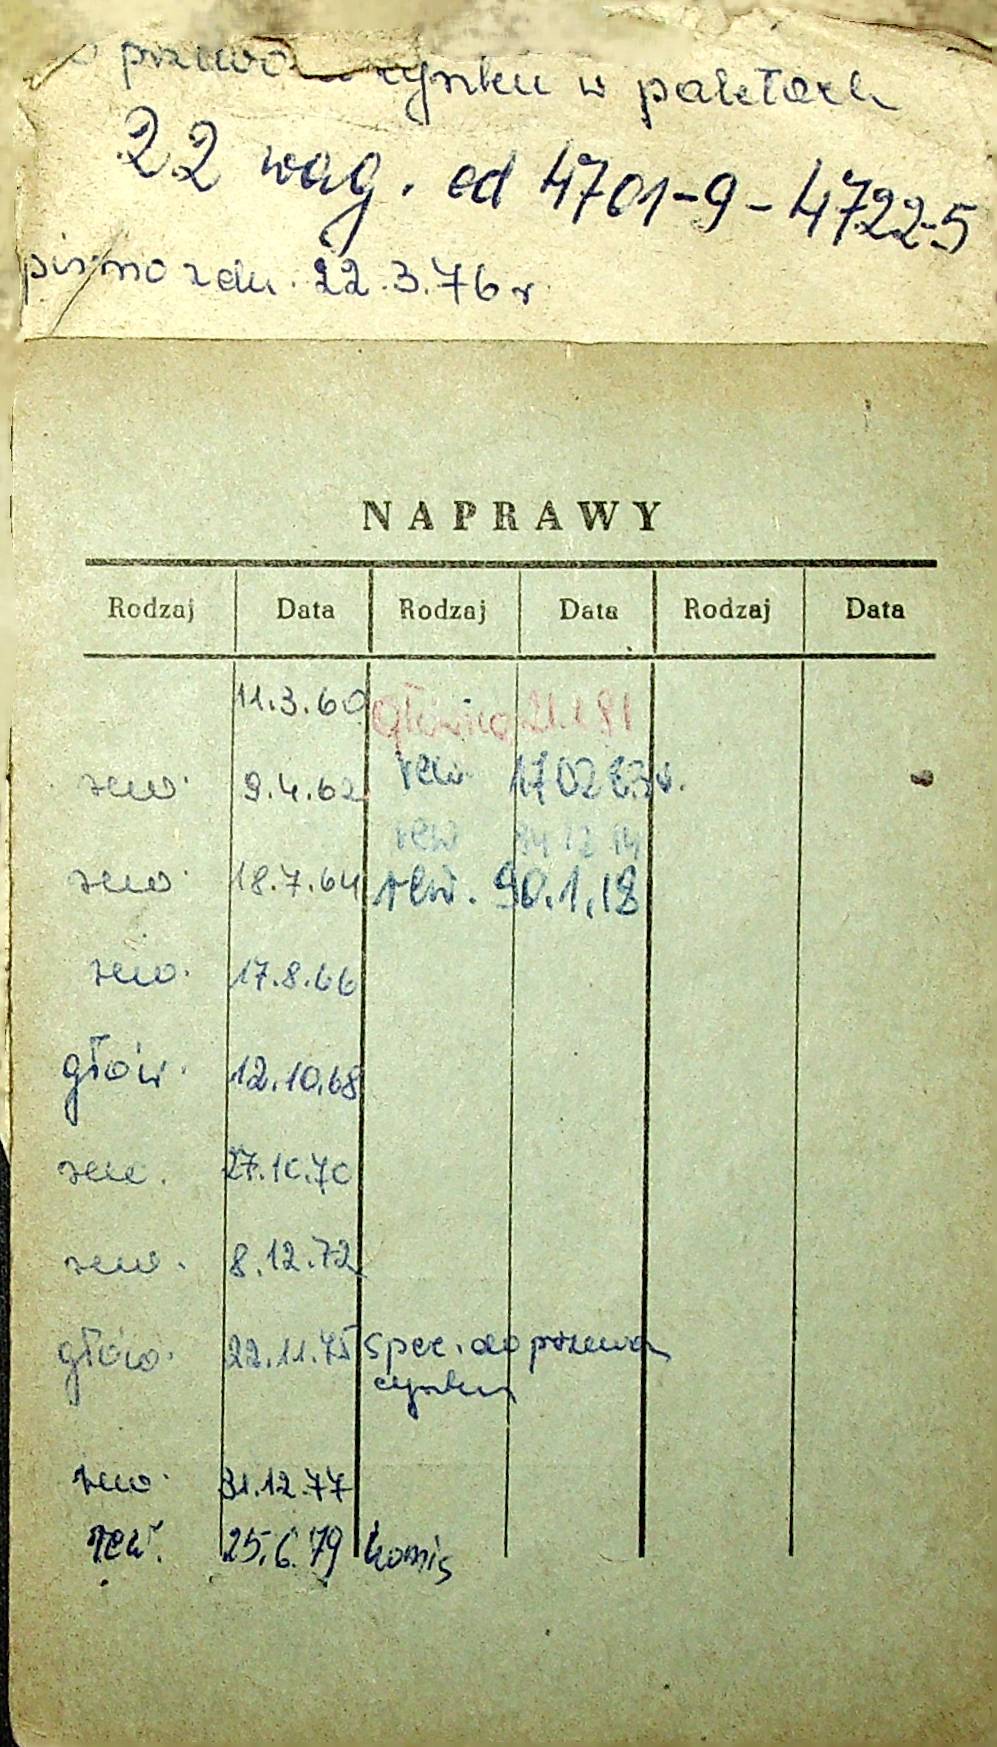 przewo cynku w paletach
22 wag. od 4701-9 - 4722-5
pismo z dn. 22.3.76 r
NAPRAWY
Rodzaj Data Rodzaj Data Rodzaj Data
11.3.60 główna 21.1.81
rew. 9.4.62 rew. 17 02 83r.
rew 84 12 14
rew. 18.7.64 rew. 90.1.18
rew. 17.8.66
głów. 12.10.68
rew. 27.10.70
rew. 8.12.72
głów. 22.11.75 spec. do przewo
cynku
rew. 31.12.77
rew. 25.6.79 komis